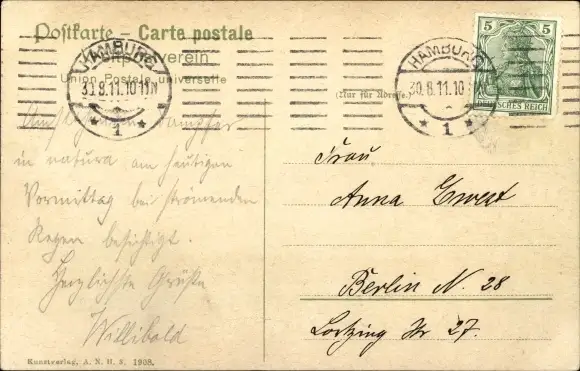 Postkarte - Carte postale
Weltpostverein
Union Postale Universelle
HAMBURG
30.8.11.10-11N
* 1 *
HAMBURG
30.8.11.10
* 1 *
5 5
DEUTSCHES REICH
(Nur für Adresse.)
Dampfer
in natura am heutigen
Vormittag bei strömenden
Regen besichtigt.
Herzlichste Grüße
Willibald
Frau
Anna Ewest
Berlin N. 28
Lortzing Str 27.
Kunstverlag, A. N. H. S. 1908.